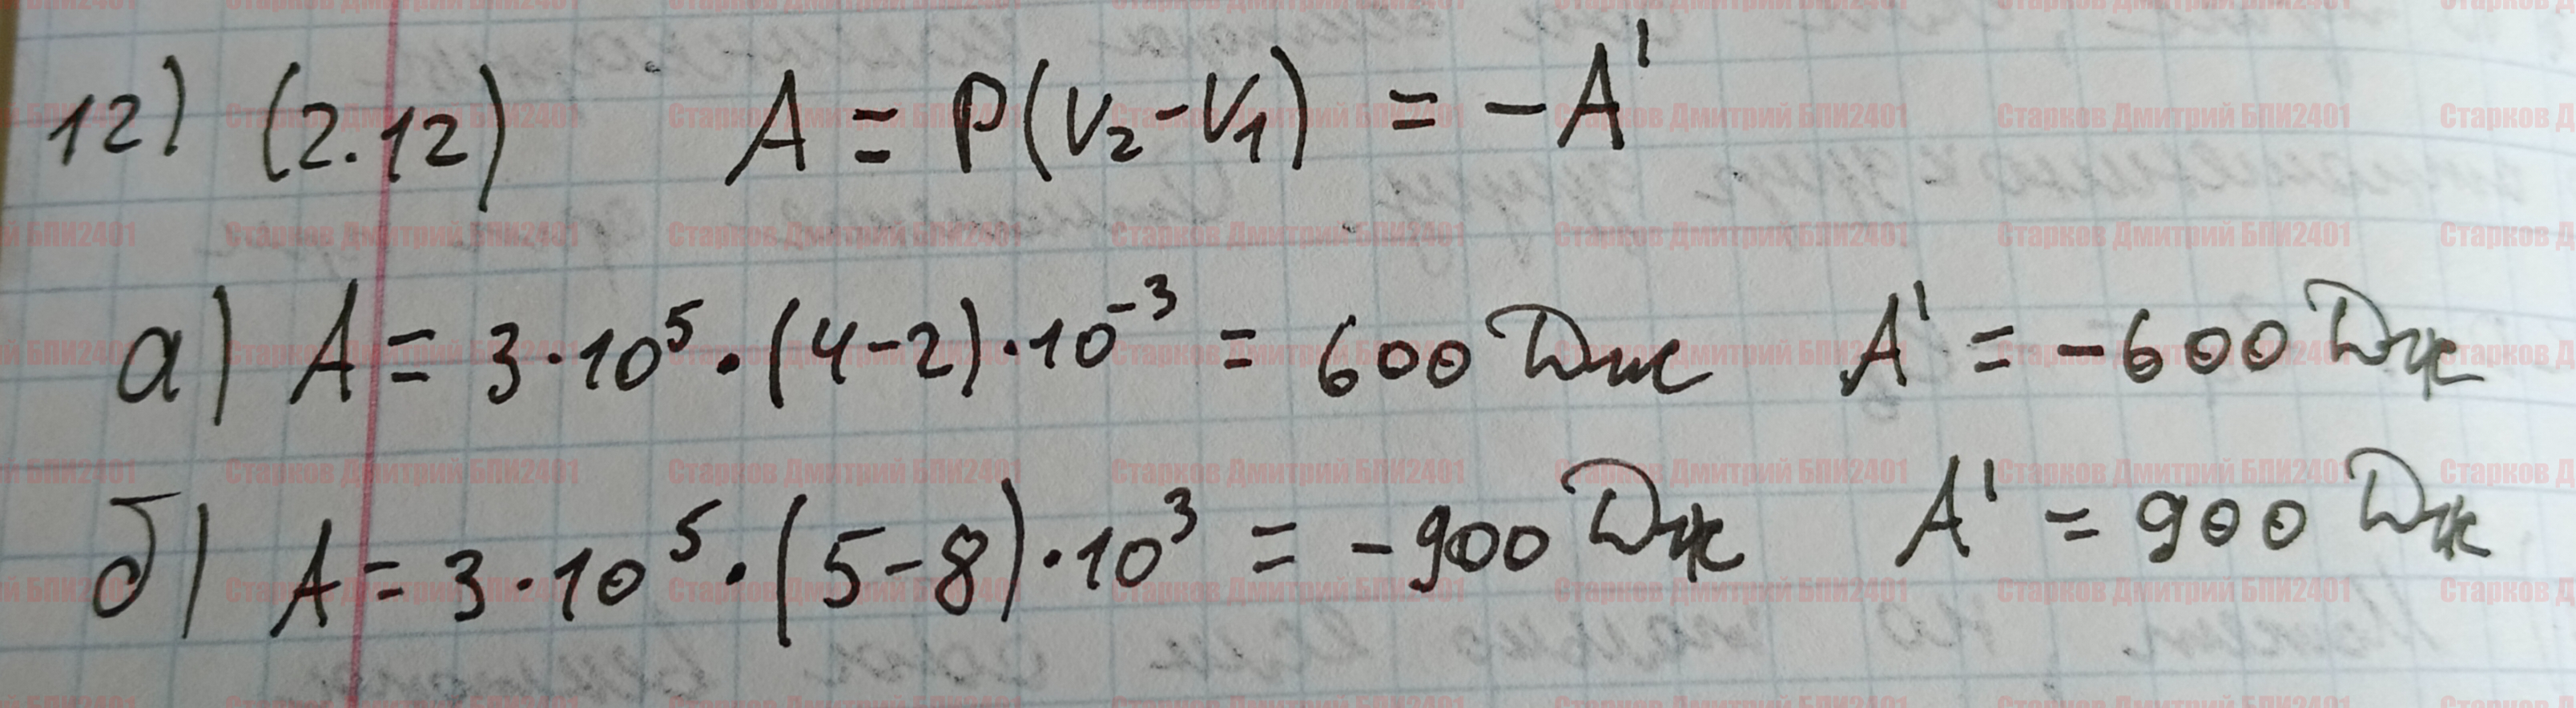 12) (2.12) A = P(V₂-V₁) = -A'
а) A = 3·10⁵·(4-2)·10⁻³ = 600 Дж A' = -600 Дж
б) A = 3·10⁵·(5-8)·10³ = -900 Дж A' = 900 Дж
Старков Дмитрий БПИ2401